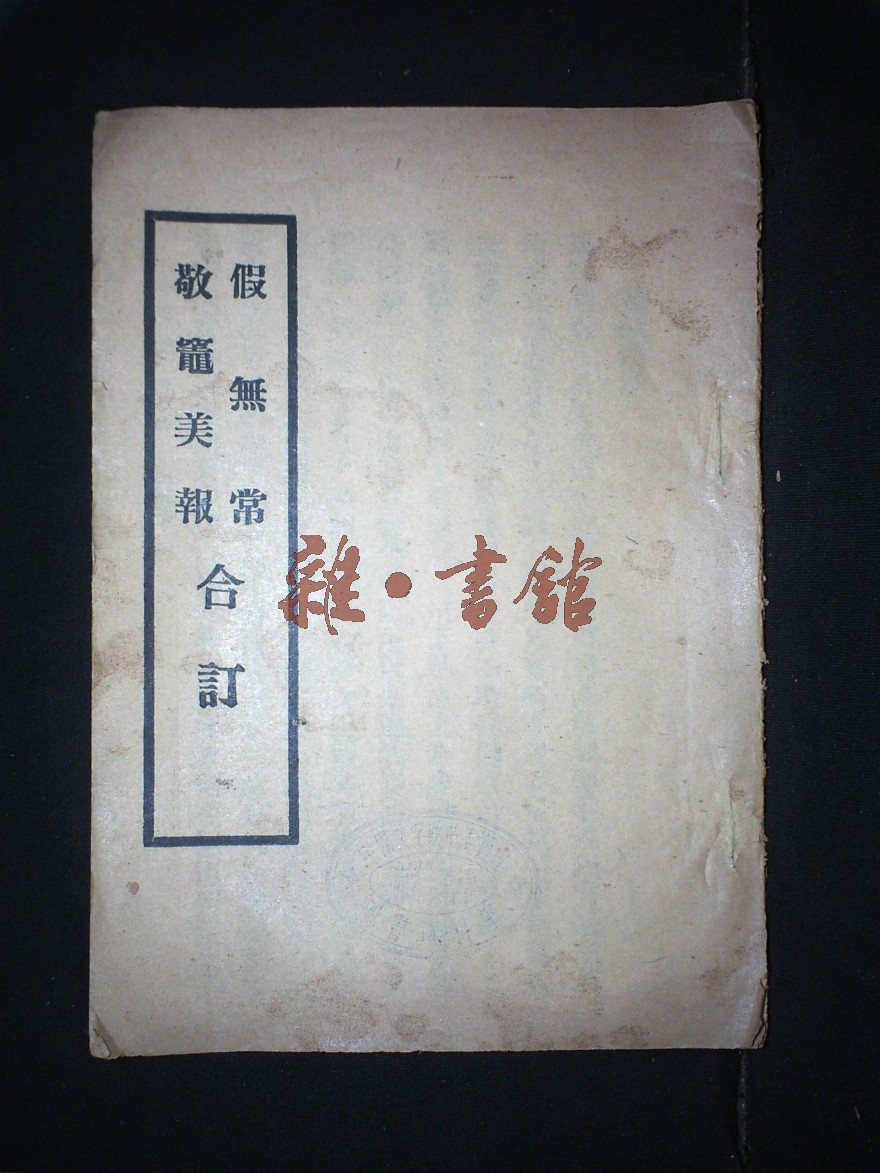 假無常
敬竈美報
合訂
雜·書館